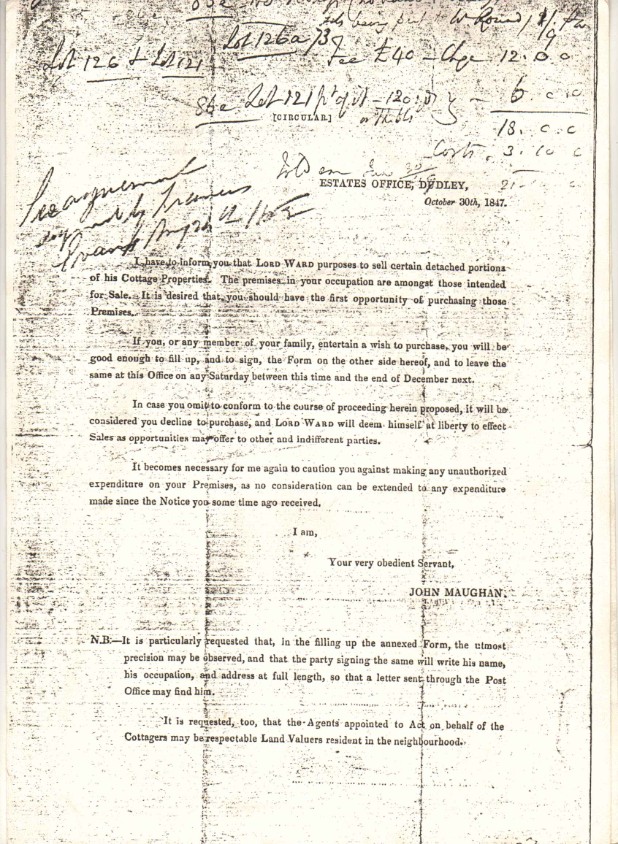 Lot 126 & Lot 121
Lot 126a
Fee £40 — Chge 12. 0. 0
Lot 121 pt of
6. 0. 0
[CIRCULAR]
18. 0. 0
Costs. 3. 10 0
Sold on
ESTATES OFFICE, DUDLEY,
October 30th, 1847.
by Francis
I have to inform you that LORD WARD purposes to sell certain detached portions
of his Cottage Properties. The premises in your occupation are amongst those intended
for Sale. It is desired that you should have the first opportunity of purchasing those
Premises.
If you, or any member of your family, entertain a wish to purchase, you will be
good enough to fill up, and to sign, the Form on the other side hereof, and to leave the
same at this Office on any Saturday between this time and the end of December next.
In case you omit to conform to the course of proceeding herein proposed, it will be
considered you decline to purchase, and LORD WARD will deem himself at liberty to effect
Sales as opportunities may offer to other and indifferent parties.
It becomes necessary for me again to caution you against making any unauthorized
expenditure on your Premises, as no consideration can be extended to any expenditure
made since the Notice you some time ago received.
I am,
Your very obedient Servant,
JOHN MAUGHAN.
N.B.—It is particularly requested that, in the filling up the annexed Form, the utmost
precision may be observed, and that the party signing the same will write his name,
his occupation, and address at full length, so that a letter sent through the Post
Office may find him.
It is requested, too, that the Agents appointed to Act on behalf of the
Cottagers may be respectable Land Valuers resident in the neighbourhood.